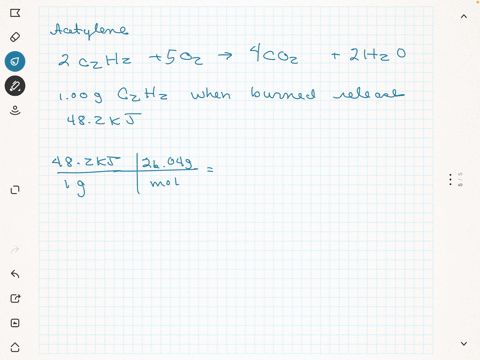 Acetylene
2 C₂H₂ + 5O₂ → 4CO₂ + 2H₂O
1.00g C₂H₂ when burned release
48.2 kJ
48.2 kJ | 26.04g =
1 g | mol